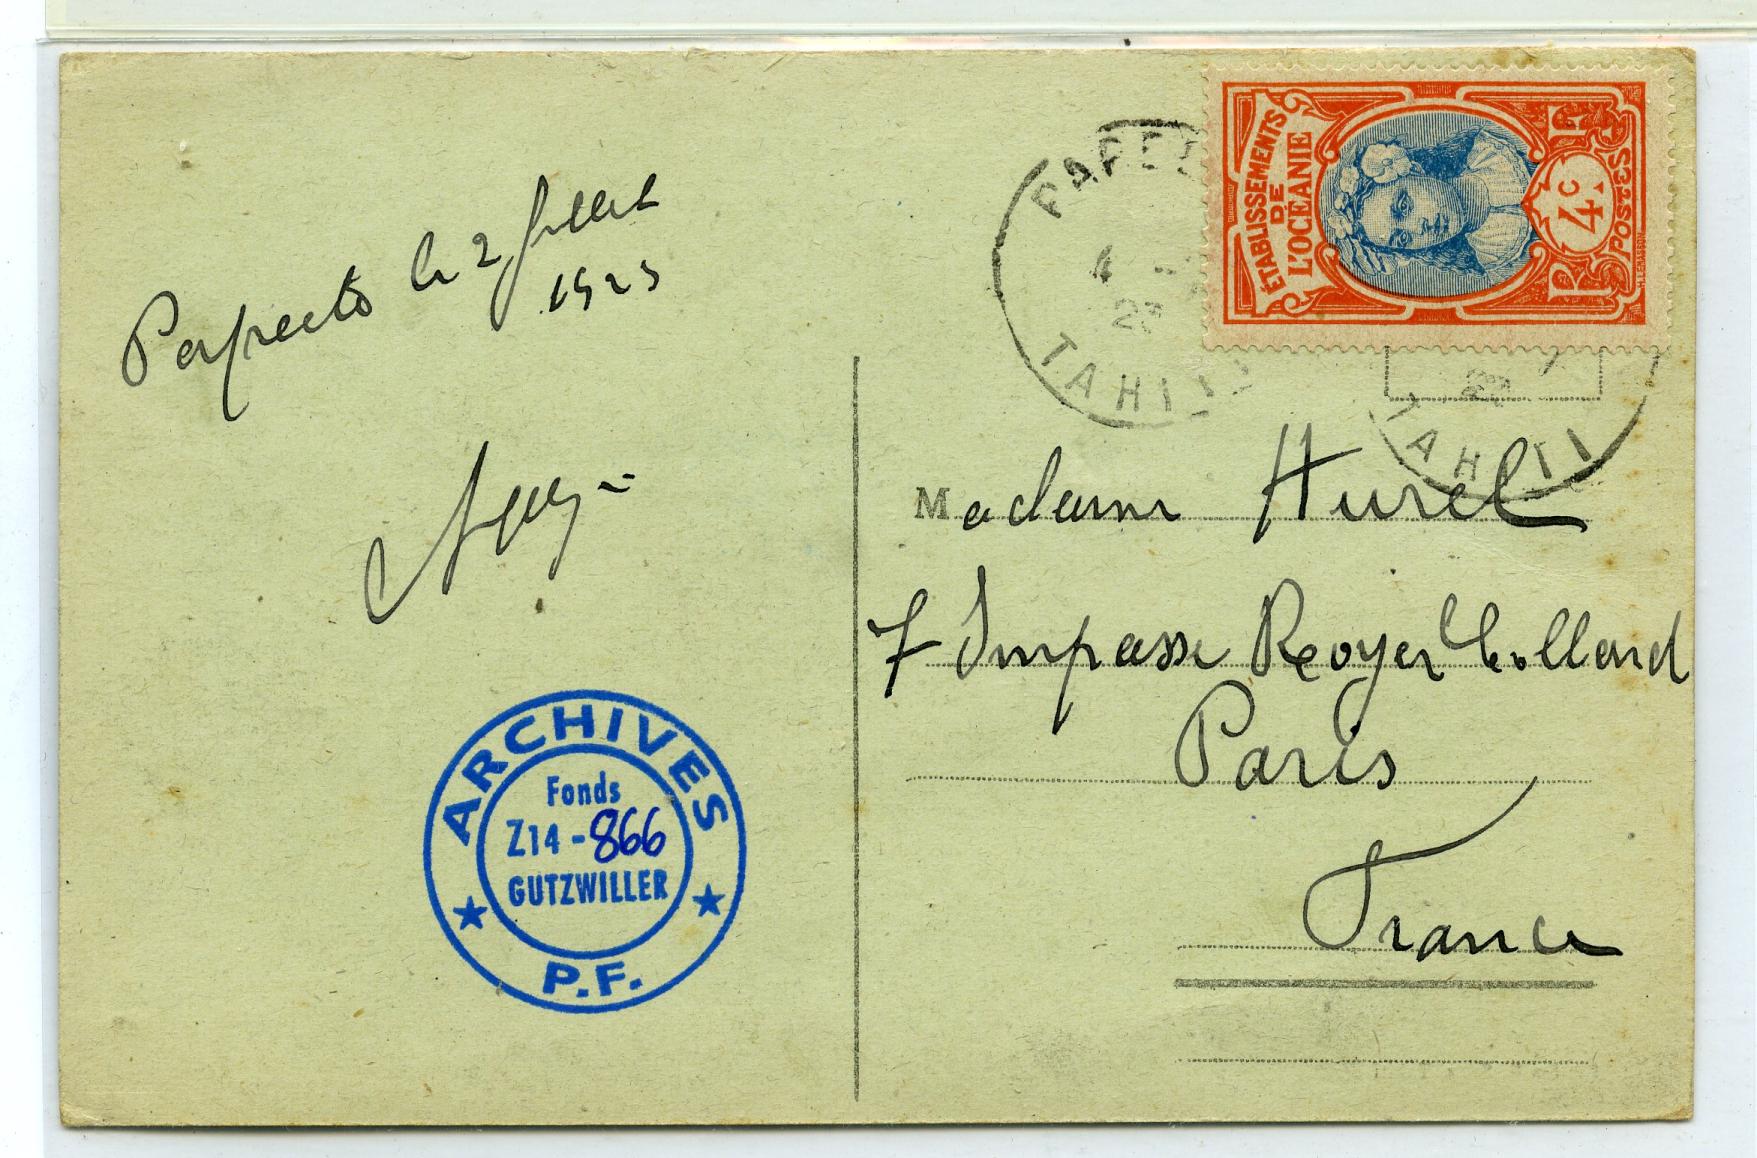 Papeete le 2 Juillet
1923
ARCHIVES
Fonds
Z14 - 866
GUTZWILLER
P.F.
PAPEE
4
23
TAHITI
ÉTABLISSEMENTS
DE
L'OCÉANIE
R F
POSTES
4c
TAHITI
Madame Hurel
7 Impasse Royer Collard
Paris
France